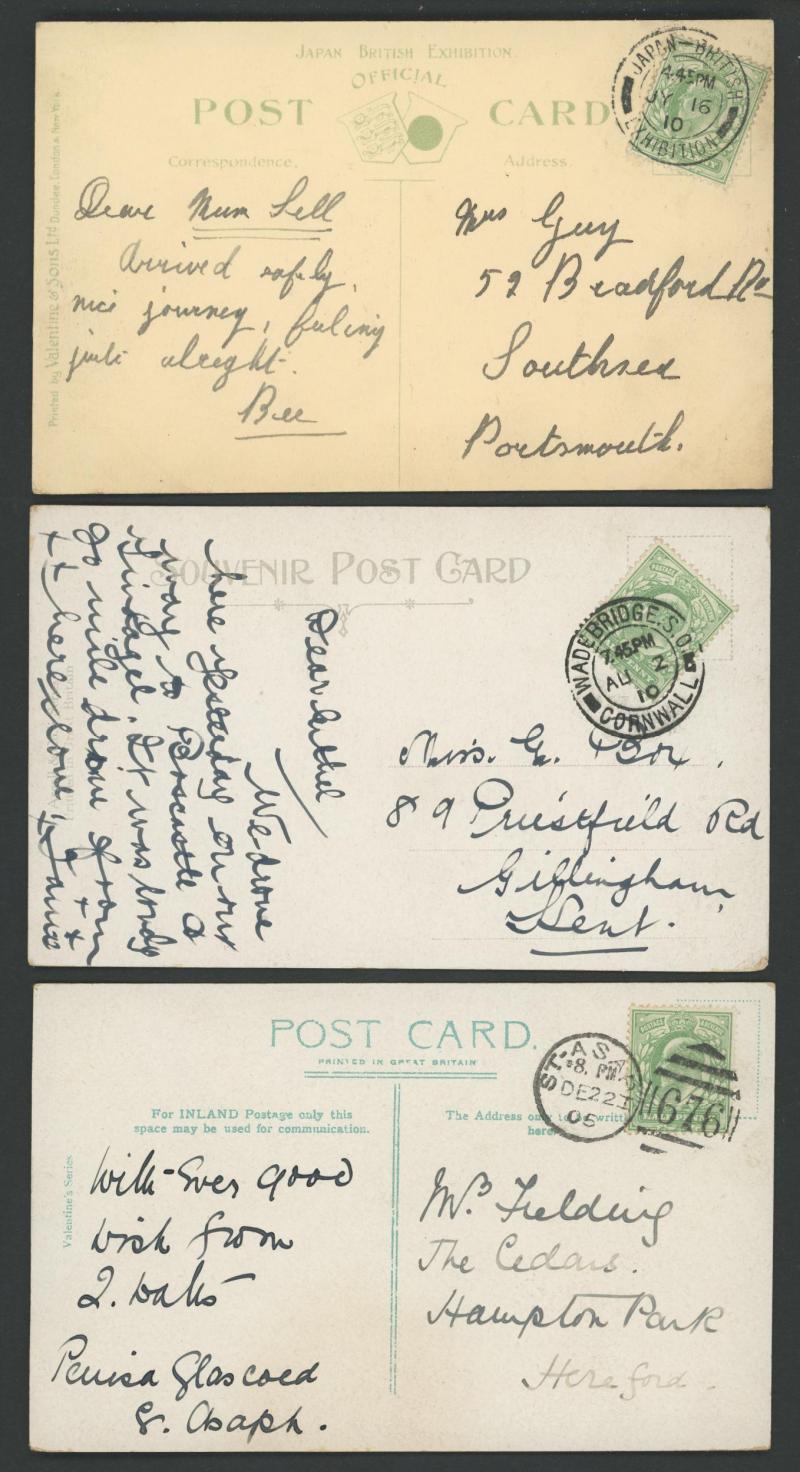 JAPAN BRITISH EXHIBITION.
OFFICIAL
POST CARD
Correspondence.
Address.
Printed by Valentine & Sons Ltd Dundee, London & New York.
JAPAN-BRITISH
4.45PM
JY 16
10
EXHIBITION
Dear Mum Sell
Arrived safely,
nice journey, feeling
just alreght.
Bee
Mrs Guy
52 Bradford Rd
Southsea
Portsmouth.
SOUVENIR POST CARD
WADEBRIDGE.S.O.
7.45PM
AU 2
10
CORNWALL
Dear Ethel
We drove
here yesterday on our
way to Boscastle &
Tintagel. It was lovely
go mile drove from
here love,
Miss. E. Box,
89 Priestfield Rd
Gillingham,
Kent.
POST CARD.
PRINTED IN GREAT BRITAIN
For INLAND Postage only this
space may be used for communication.
The Address only to be written
here.
Valentine's Series
ST. ASAPH
8. PM
DE 22
05
676
With Ever good
wish from
Glascoed
St. Asaph.
Mrs. Fielding
The Cedars.
Hampton Park
Hereford.